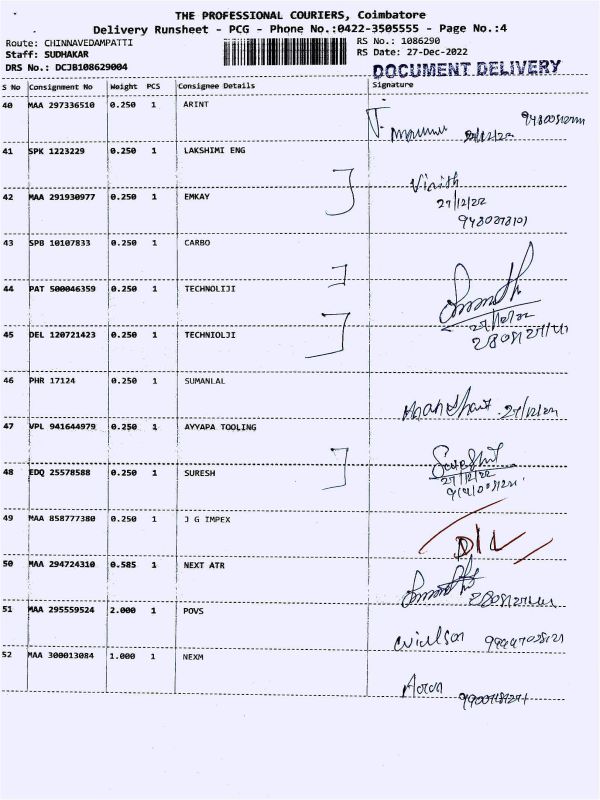 THE PROFESSIONAL COURIERS, Coimbatore
Delivery Runsheet - PCG - Phone No.:0422-3505555 - Page No.:4
Route: CHINNAVEDAMPATTI
Staff: SUDHAKAR
DRS No.: DCJB108629004
RS No.: 1086290
RS Date: 27-Dec-2022
DOCUMENT DELIVERY
S No Consignment No Weight PCS Consignee Details Signature
40 MAA 297336510 0.250 1 ARINT
41 SPK 1223229 0.250 1 LAKSHIMI ENG
42 MAA 291930977 0.250 1 EMKAY
27/12/22
43 SPB 10107833 0.250 1 CARBO
44 PAT 500046359 0.250 1 TECHNOLIJI
27/12/22
45 DEL 120721423 0.250 1 TECHNIOLJI
46 PHR 17124 0.250 1 SUMANLAL
27/12/22
47 VPL 941644979 0.250 1 AYYAPA TOOLING
48 EDQ 25578588 0.250 1 SURESH
27/12/22
49 MAA 858777380 0.250 1 J G IMPEX D/L
50 MAA 294724310 0.585 1 NEXT ATR
51 MAA 295559524 2.000 1 POVS
52 MAA 300013084 1.000 1 NEXM